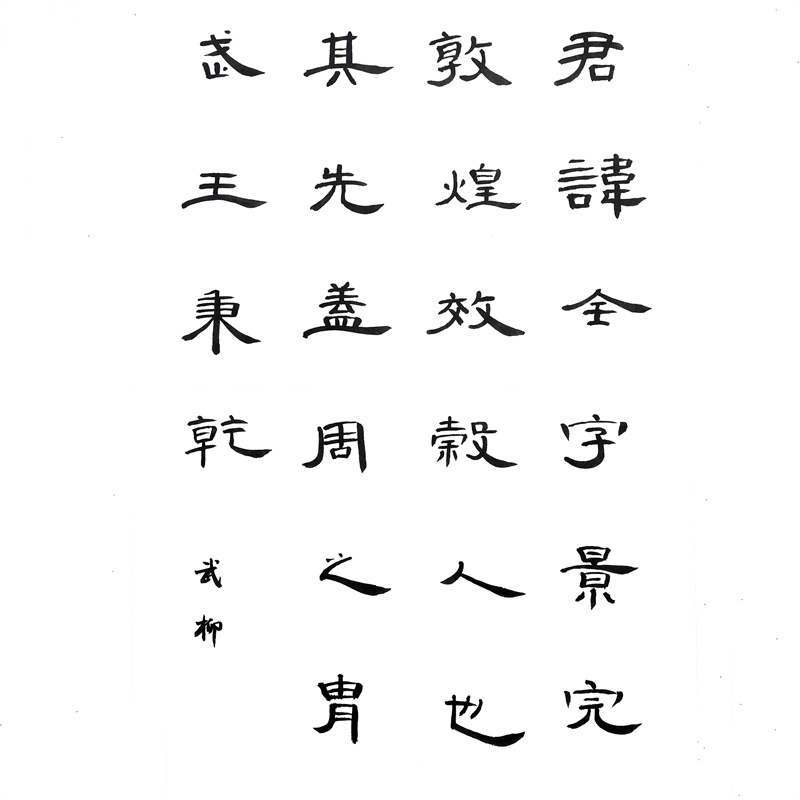 君諱全字景完
敦煌效穀人也
其先蓋周之胄
武王秉乾
武柳